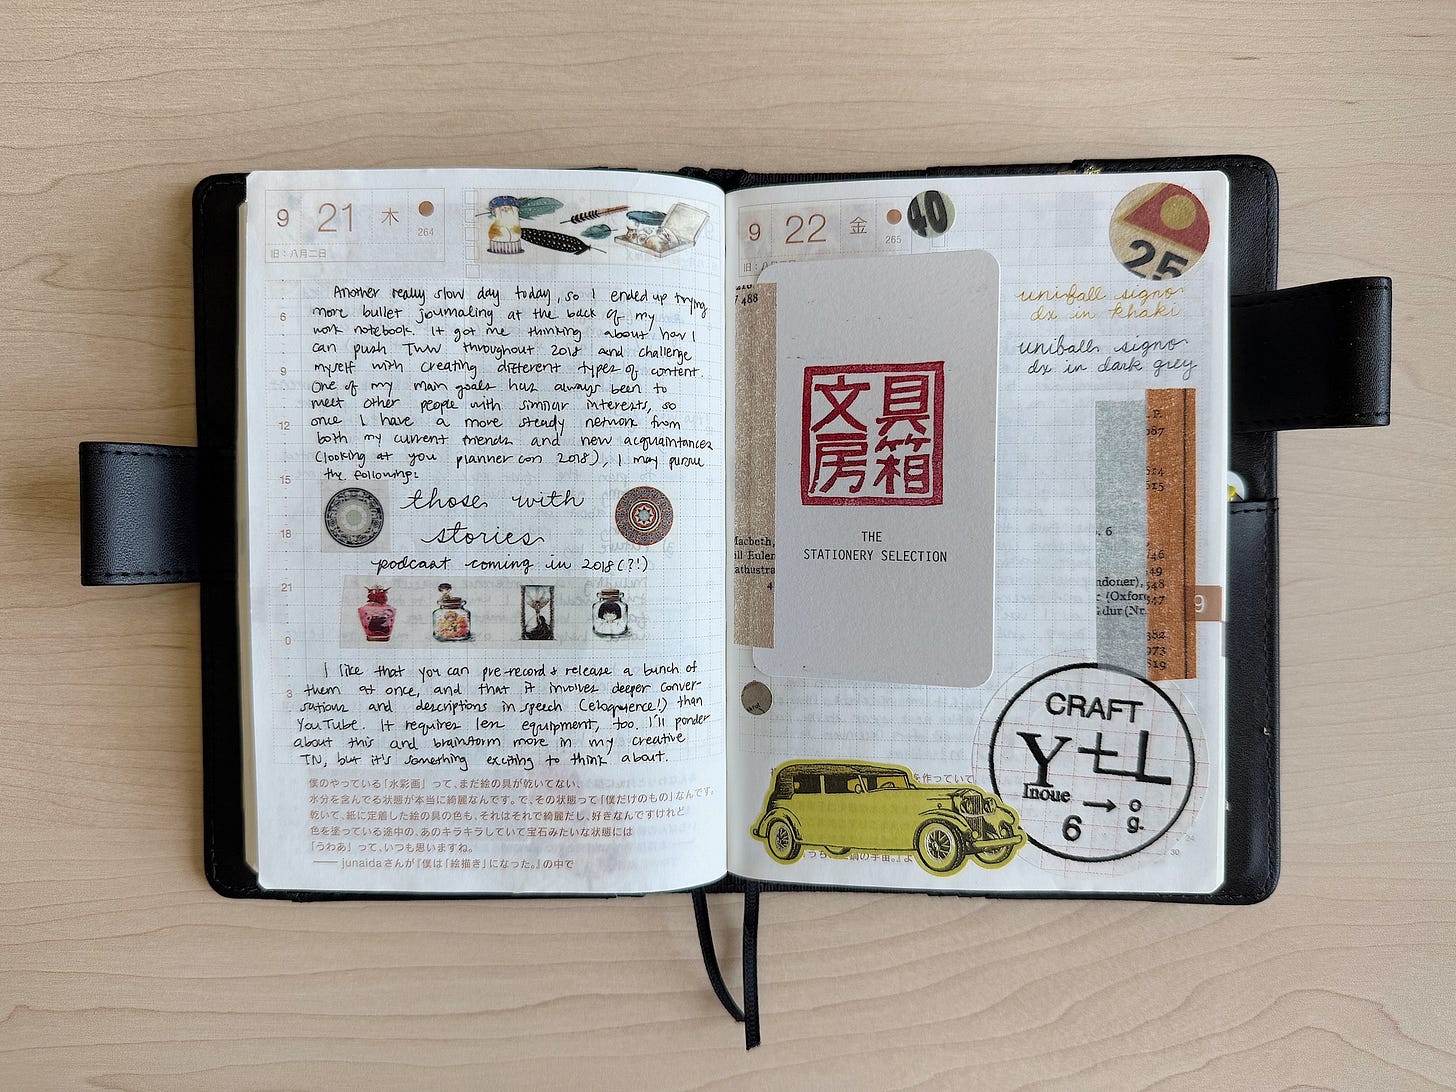 9 21 木
264
旧：八月二日
Another really slow day today, so I ended up trying
more bullet journaling at the back of my
work notebook. It got me thinking about how I
can push TWW throughout 2018 and challenge
myself with creating different types of content.
One of my main goals has always been to
meet other people with similar interests, so
once I have a more steady network from
both my current friends and new acquaintances
(looking at you planner con 2018), I may pursue
the following:
those with
stories
podcast coming in 2018(?!)
I like that you can pre-record & release a bunch of
them at once, and that it involves deeper conver-
sations and descriptions in speech (eloquence!) than
YouTube. It requires less equipment, too. I'll ponder
about this and brainstorm more in my creative
TN, but it's something exciting to think about.
6
9
12
15
18
21
0
3
僕のやっている「水彩画」って、まだ絵の具が乾いてない、
水分を含んでる状態が本当に綺麗なんです。で、その状態って「僕だけのもの」なんです。
乾いて、紙に定着した絵の具の色も、それはそれで綺麗だし、好きなんですけれど
色を塗っている途中の、あのキラキラしていて宝石みたいな状態には
「うわあ」って、いつも思いますね。
——junaidaさんが『僕は「絵描き」になった。』の中で
9 22 金
265
40
25
uniball signo
dx in khaki
uniball signo
dx in dark grey
7 488
Macbeth,
ill Eulen
athustra
4
文具
房箱
THE
STATIONERY SELECTION
P.
087
514
515
. 6
546
549
ndoner), 548
: (Oxford 547
dur (Nr.
382
973
819
9
CRAFT
Y+L
Inoue → o
6 g.
を作っていて
24
30